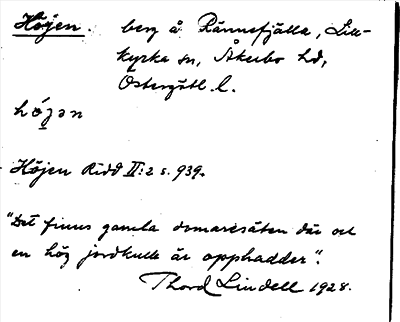 Höjen. berg å Rännefjälla, Lill-
kyrka sn, Åkerbo hd,
Östergötl. l.
hö́jən
Höjen Ridd II:2 s. 939.
"Det finns gamla domaresäten där och
en hög jordkulle är upphadder".
Thord Lindell 1928.